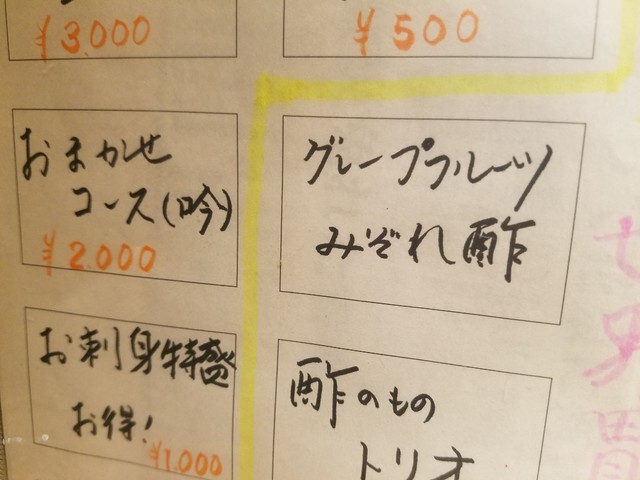 ¥3,000
¥500
おまかせ
コース(吟)
¥2,000
お刺身特盛
お得!
¥1,000
グレープフルーツ
みぞれ酢
酢のもの
トリオ